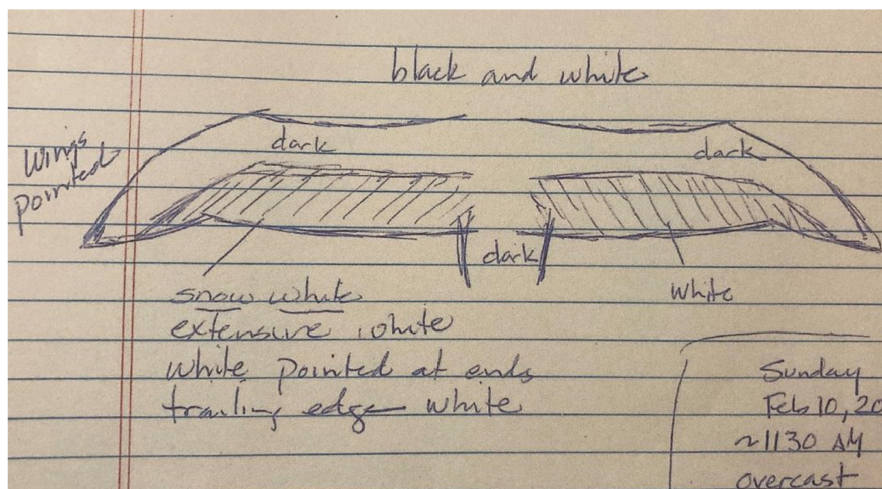 black and white
wings
pointed
dark
dark
dark
snow white
extensive white
white pointed at ends
trailing edge white
white
Sunday
Feb 10, 20
~1130 AM
overcast